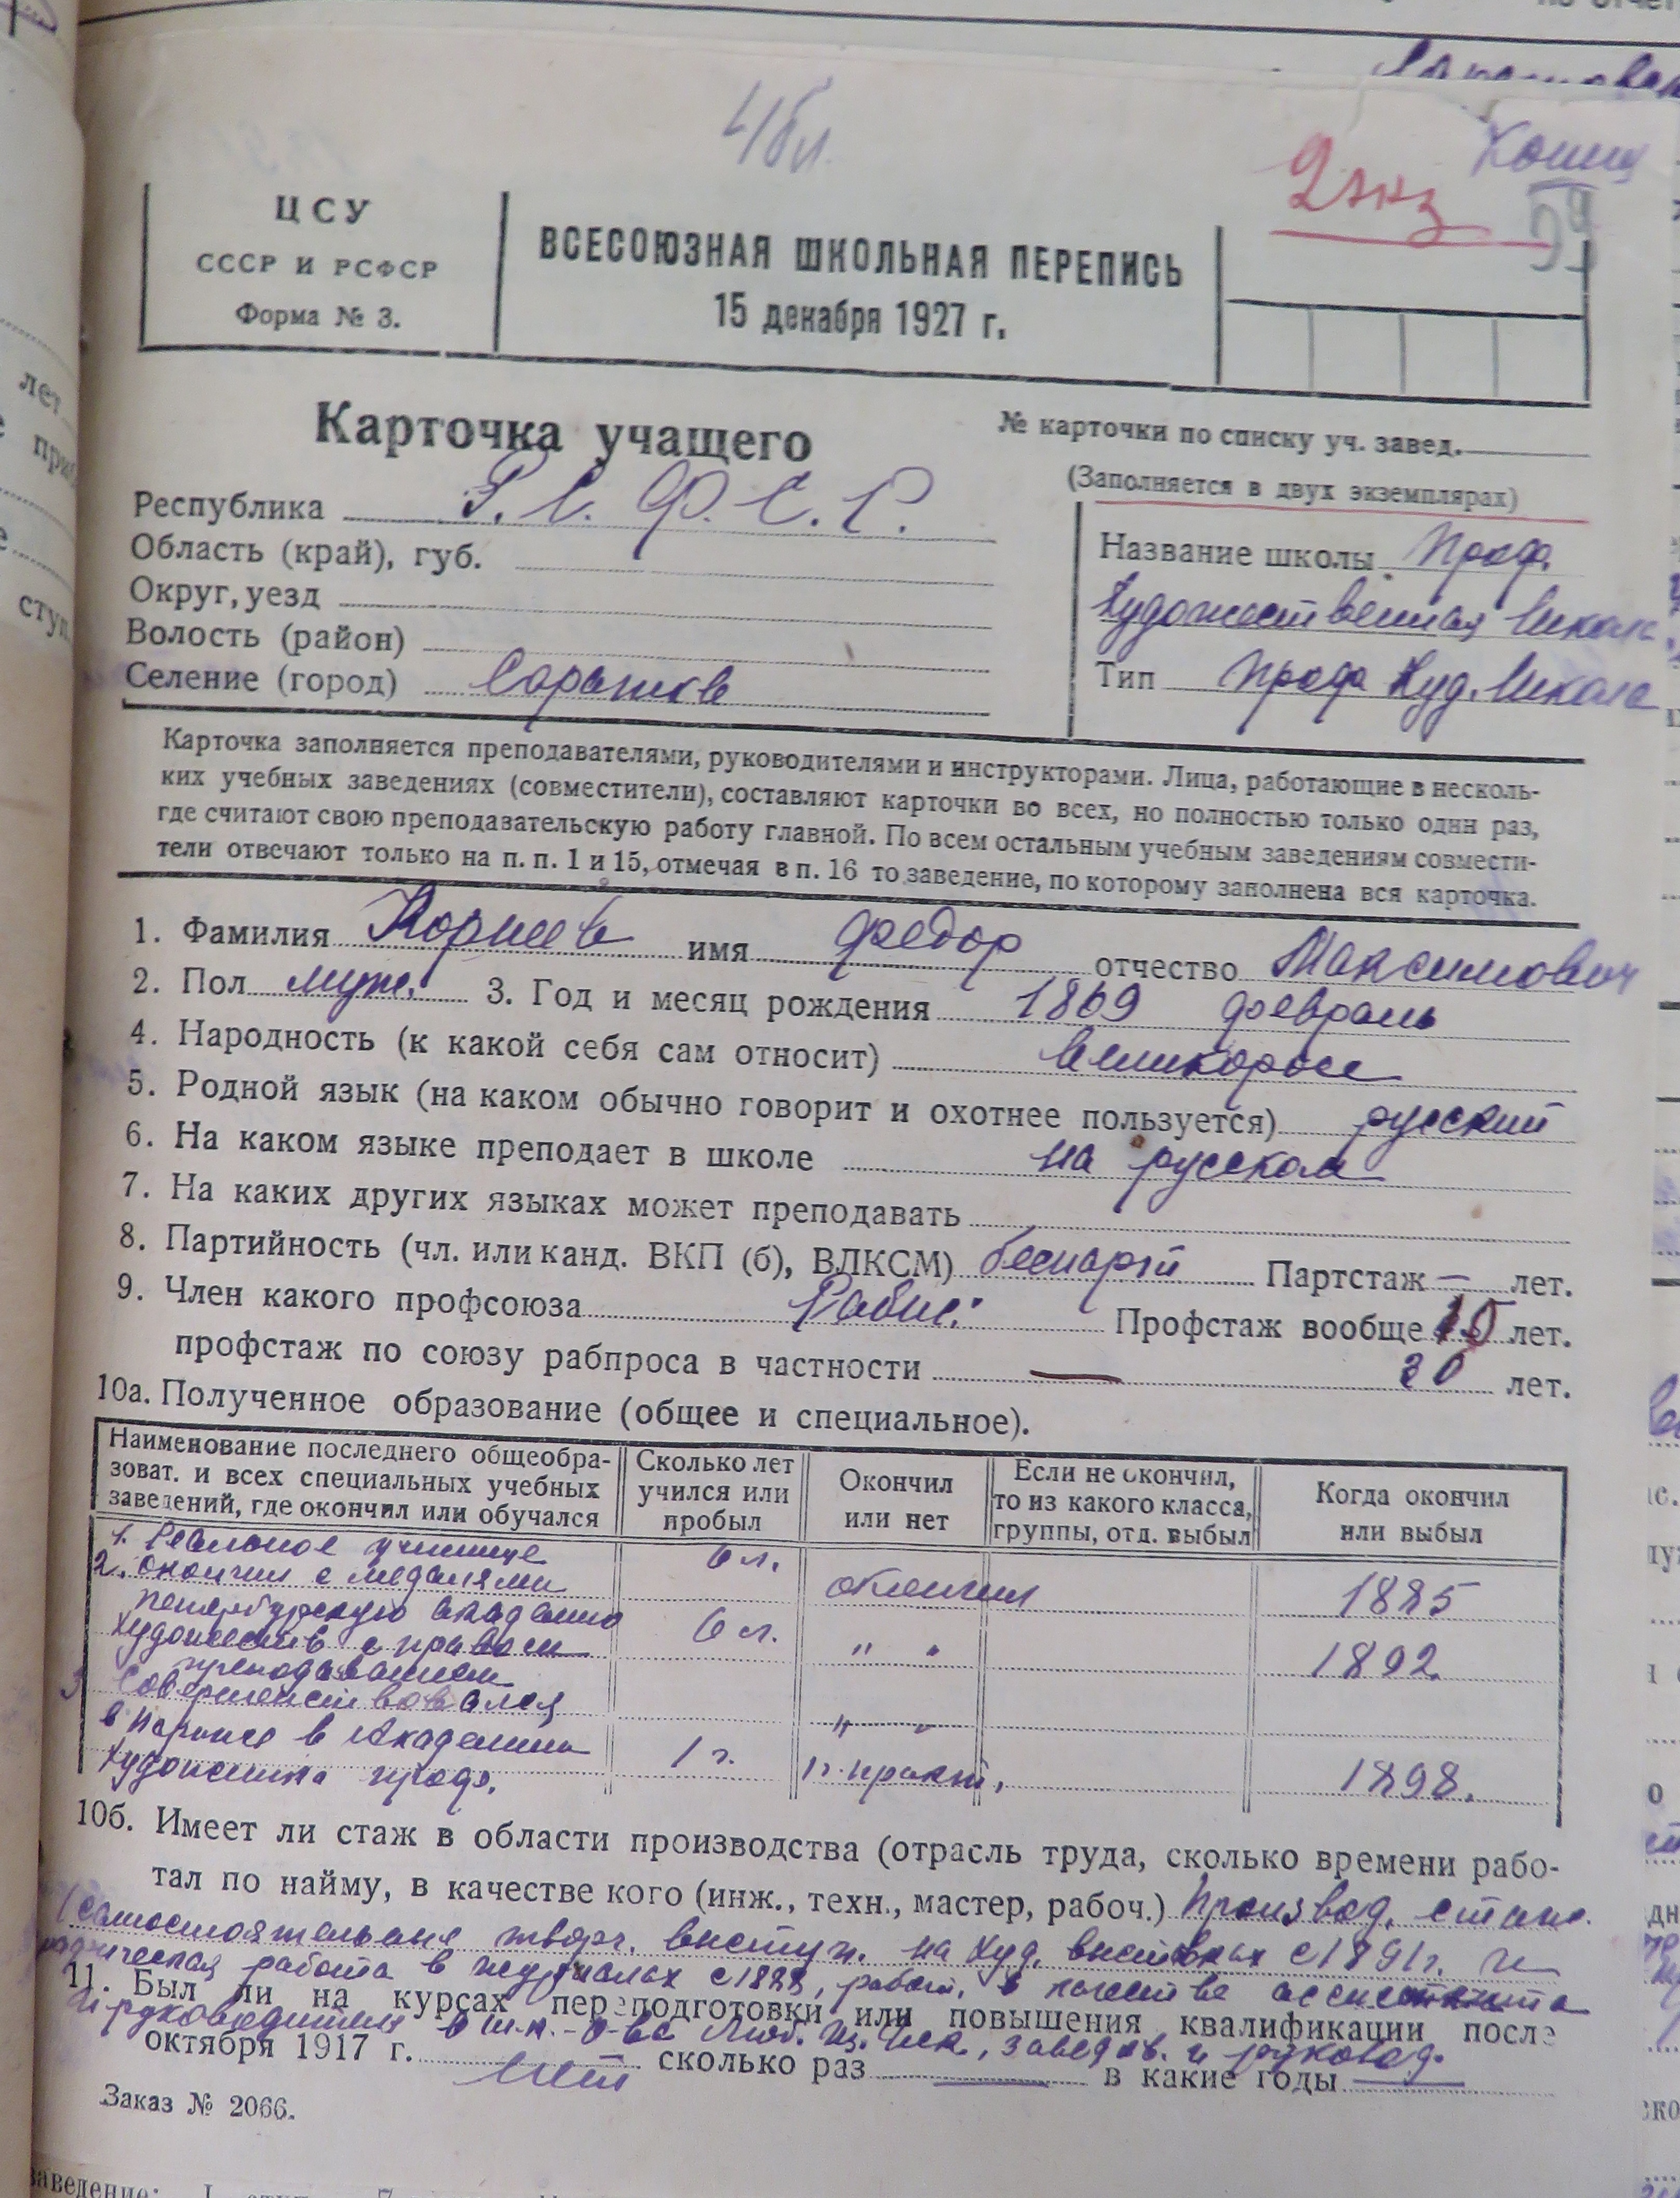 4/бл.
Копия
2 экз
59
ЦСУ
СССР И РСФСР
Форма № 3.
ВСЕСОЮЗНАЯ ШКОЛЬНАЯ ПЕРЕПИСЬ
15 декабря 1927 г.
Карточка учащего
№ карточки по списку уч. завед.
(Заполняется в двух экземплярах)
Республика Р. С. Ф. С. Р.
Область (край), губ.
Округ, уезд
Волость (район)
Селение (город) Саратов
Название школы Проф.
Художественная Школа
Тип Проф Худ. Школа
Карточка заполняется преподавателями, руководителями и инструкторами. Лица, работающие в несколь-
ких учебных заведениях (совместители), составляют карточки во всех, но полностью только один раз,
где считают свою преподавательскую работу главной. По всем остальным учебным заведениям совмести-
тели отвечают только на п. п. 1 и 15, отмечая в п. 16 то заведение, по которому заполнена вся карточка.
1. Фамилия Корнеев имя Федор отчество Максимович
2. Пол муж. 3. Год и месяц рождения 1869 февраль
4. Народность (к какой себя сам относит) великоросс
5. Родной язык (на каком обычно говорит и охотнее пользуется) русский
6. На каком языке преподает в школе на русском
7. На каких других языках может преподавать
8. Партийность (чл. или канд. ВКП (б), ВЛКСМ) беспарт Партстаж — лет.
9. Член какого профсоюза Рабис. Профстаж вообще 10 лет.
профстаж по союзу рабпроса в частности — 30 лет.
10а. Полученное образование (общее и специальное).
Наименование последнего общеобра-
зоват. и всех специальных учебных
заведений, где окончил или обучался
Сколько лет
учился или
пробыл
Окончил
или нет
Если не окончил,
то из какого класса,
группы, отд. выбыл
Когда окончил
или выбыл
1. Реальное училище 6 л. окончил 1885
2. Окончил с медалями
петербургскую академию
художеств с правом 6 л. " " 1892
преподавания
3 Совершенствовался " "
в Париже в Академии
художника проф. 1 г. 1 г. практ. 1898.
10б. Имеет ли стаж в области производства (отрасль труда, сколько времени рабо-
тал по найму, в качестве кого (инж., техн., мастер, рабоч.) Производ. стаж.
(самостоятельные творч. выступ. на худ. выставках с 1891 г. и
работа в журналах с 1888, работ. в качестве ассистента
11. Был ли на курсах переподготовки или повышения квалификации после
и руководителя в о-ва Люб. Из. Иск., заведыв. и руковод.
октября 1917 г. Нет сколько раз — в какие годы —
Заказ № 2066.